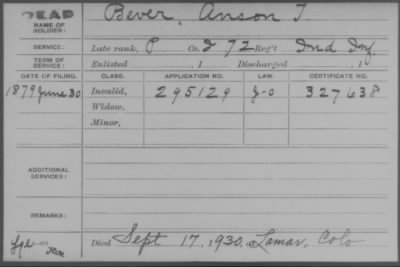 DEAD Bever, Anson T
NAME OF SOLDIER:
SERVICE: Late rank, P Co. I 72 Reg't Ind Inf
TERM OF SERVICE: Enlisted , 1 Discharged , 1
DATE OF FILING. CLASS. APPLICATION NO. LAW. CERTIFICATE NO.
1879 June 30 Invalid, 295129 327638
Widow,
Minor,
ADDITIONAL SERVICES:
REMARKS:
Died Sept 17, 1930, Lamar, Colo